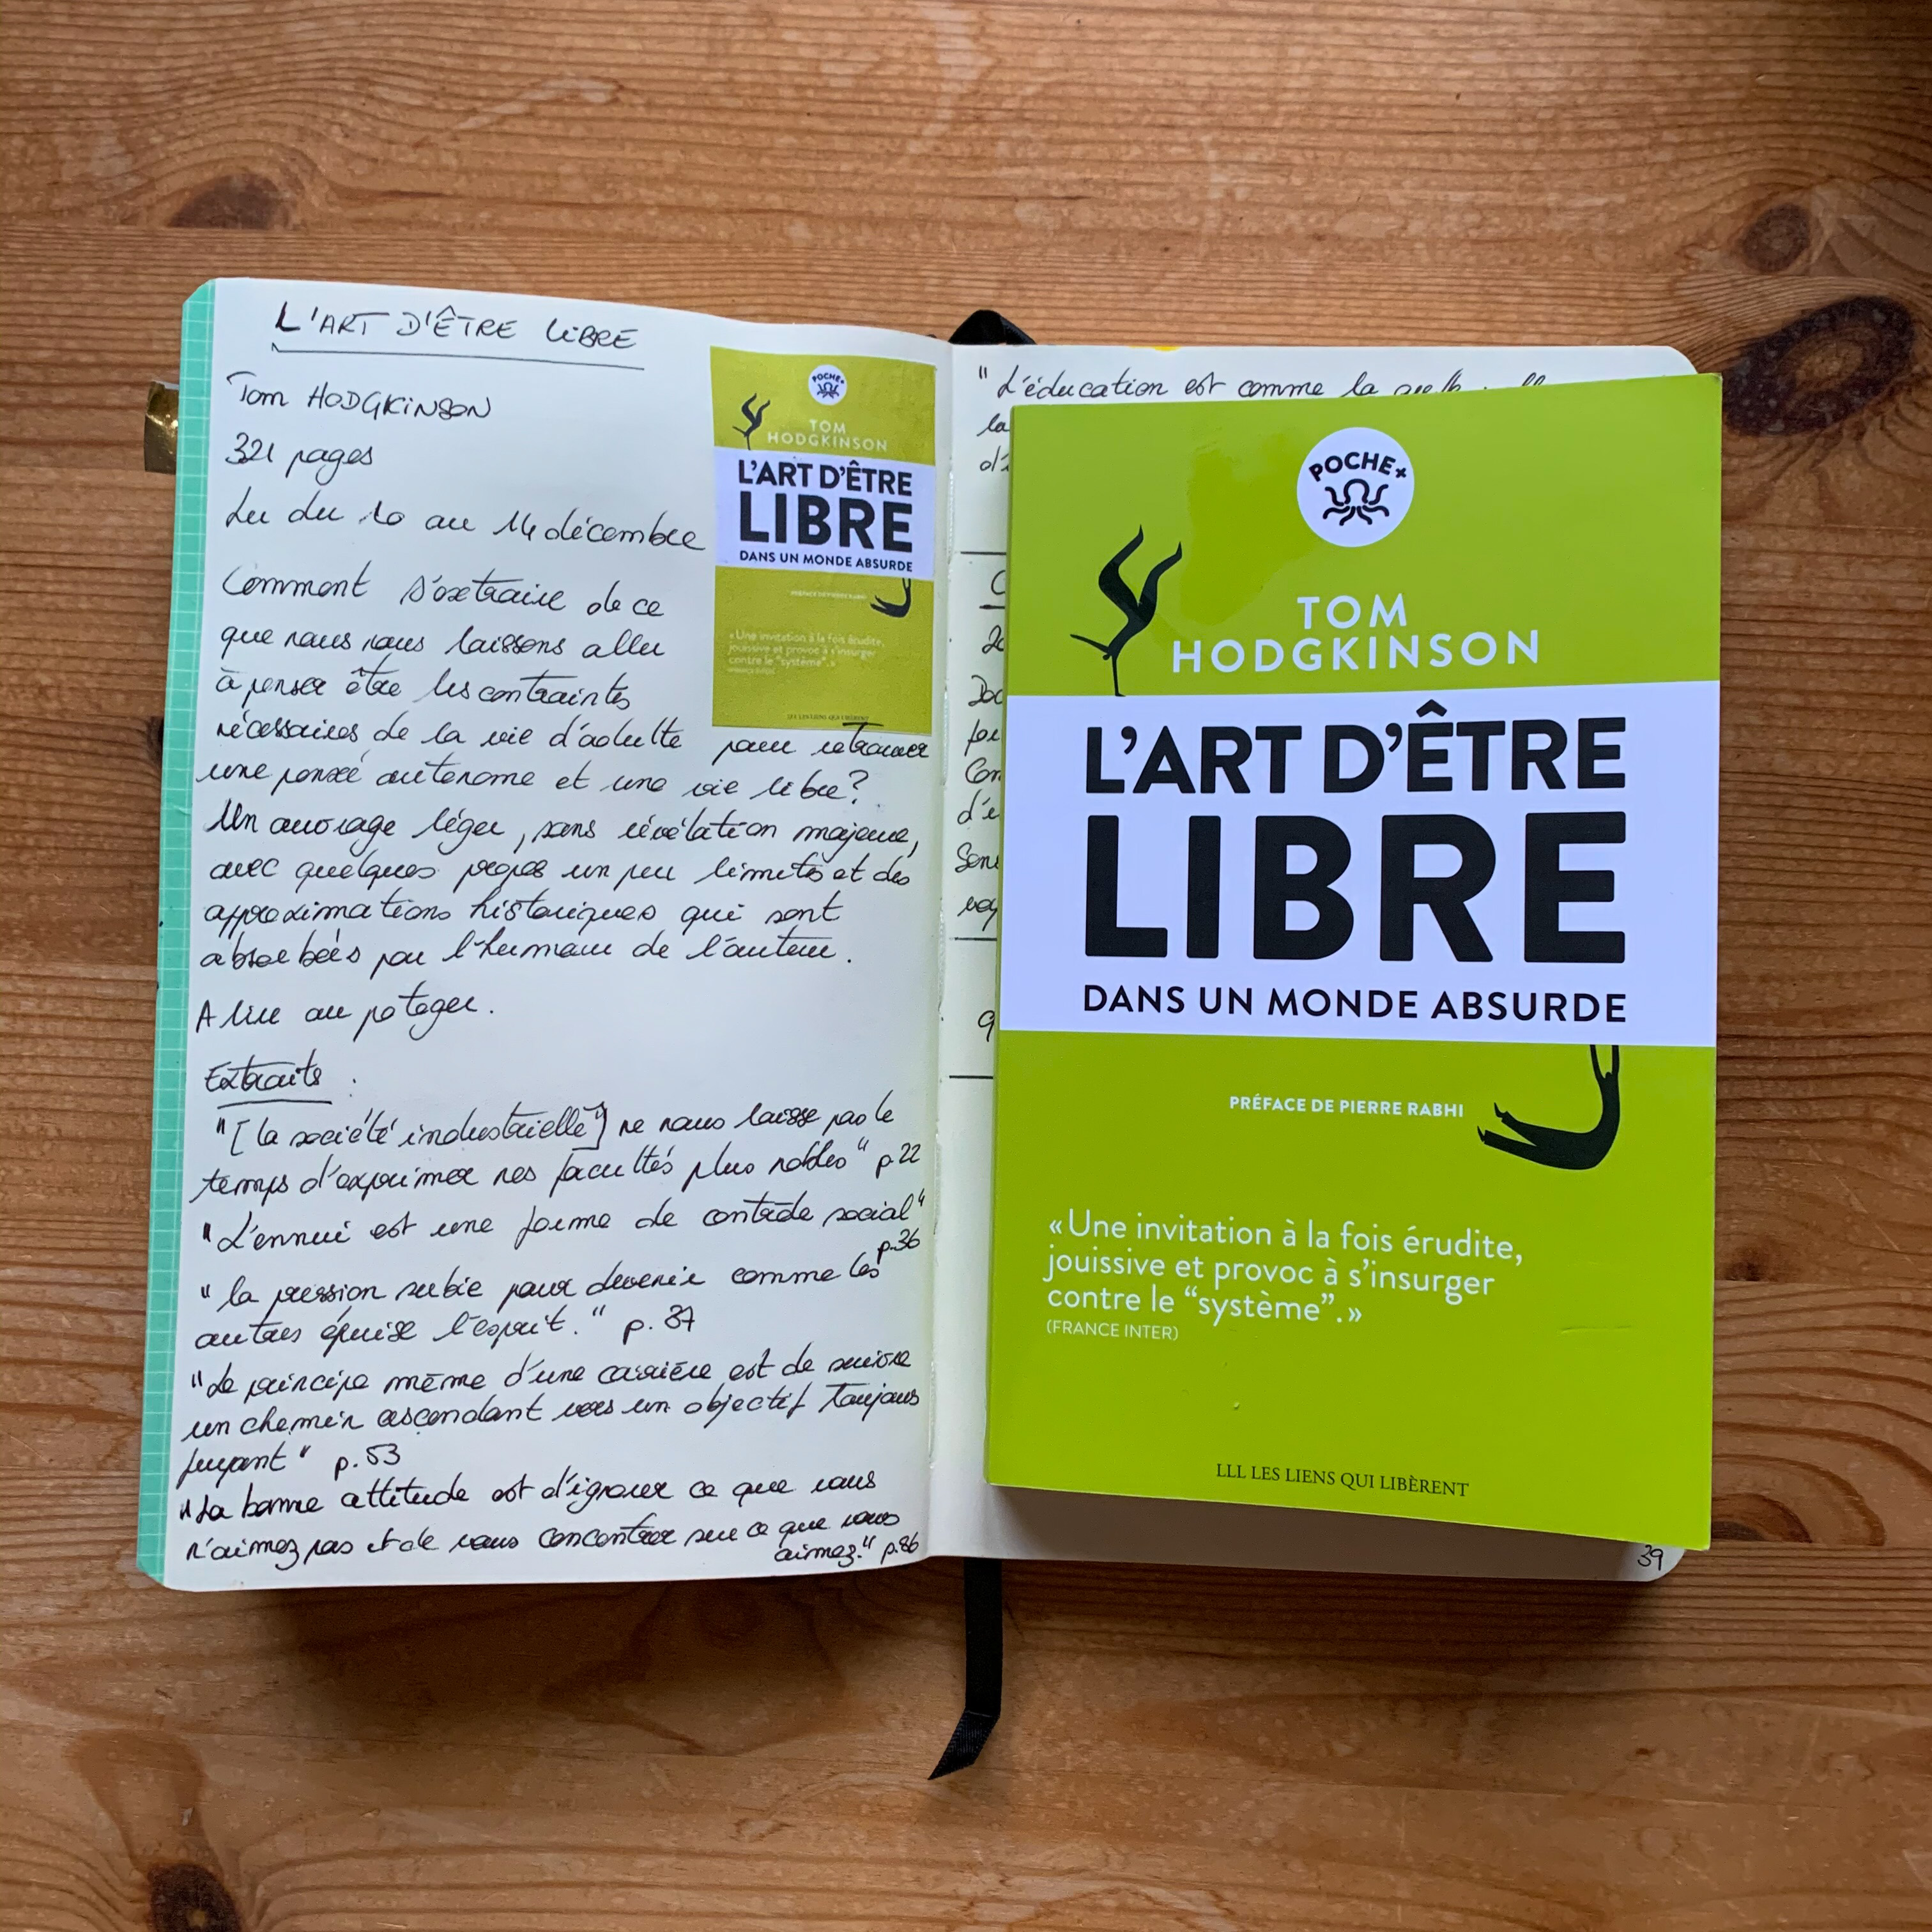 L'ART D'ÊTRE LIBRE
Tom HODGKINSON
321 pages
Lu du 10 au 14 décembre
Comment s'extraire de ce
que nous nous laissons aller
à penser être les contraintes
nécessaires de la vie d'adulte pour retrouver
une pensée autonome et une vie libre?
Un ouvrage léger, sans révélation majeure,
avec quelques propos un peu limites et des
approximations historiques qui sont
absorbées par l'humour de l'auteur.
A lire au potager.
Extraits :
"[la société industrielle] ne nous laisse pas le
temps d'exprimer nos facultés plus nobles" p.22
"L'ennui est une forme de contrôle social"
p.36
"la pression subie pour devenir comme les
autres épuise l'esprit." p. 37
"Le principe même d'une carrière est de suivre
un chemin ascendant vers un objectif toujours
fuyant" p. 53
"La bonne attitude est d'ignorer ce que vous
n'aimez pas et de vous concentrer sur ce que vous
aimez." p.86
POCHE+
TOM
HODGKINSON
L'ART D'ÊTRE
LIBRE
DANS UN MONDE ABSURDE
PRÉFACE DE PIERRE RABHI
«Une invitation à la fois érudite,
jouissive et provoc à s'insurger
contre le "système".»
LES LIENS QUI LIBÈRENT
"L'éducation est comme la
la
POCHE+
TOM
HODGKINSON
L'ART D'ÊTRE
LIBRE
DANS UN MONDE ABSURDE
PRÉFACE DE PIERRE RABHI
«Une invitation à la fois érudite,
jouissive et provoc à s'insurger
contre le "système".»
(FRANCE INTER)
LLL LES LIENS QUI LIBÈRENT
39